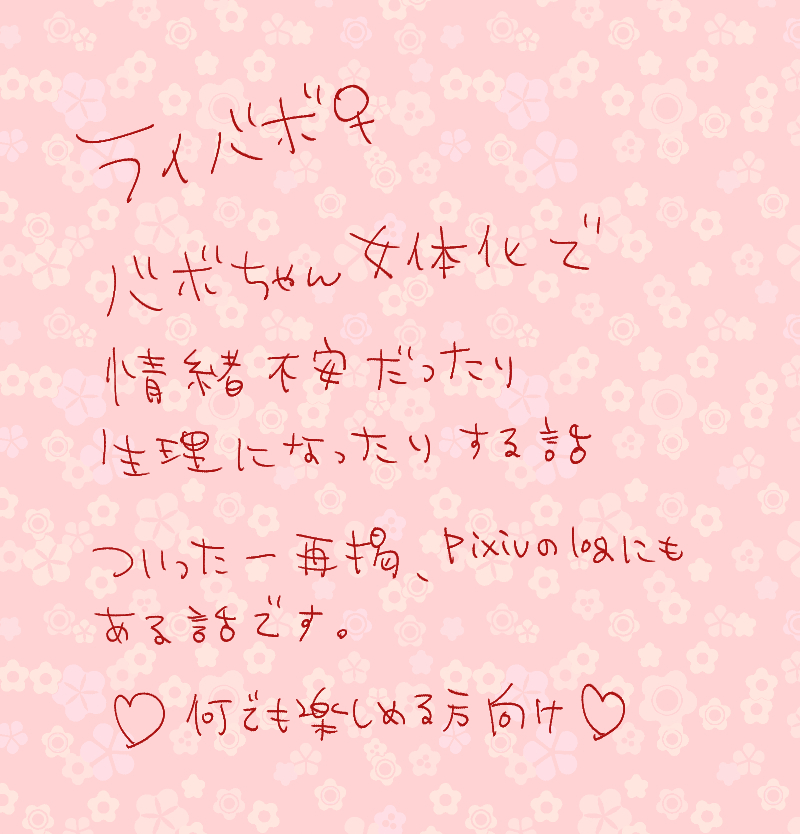 ライバボ♀
バボちゃん女体化で
情緒不安だったり
生理になったりする話
ついったー再掲、pixivのlogにも
ある話です。
♡何でも楽しめる方向け♡